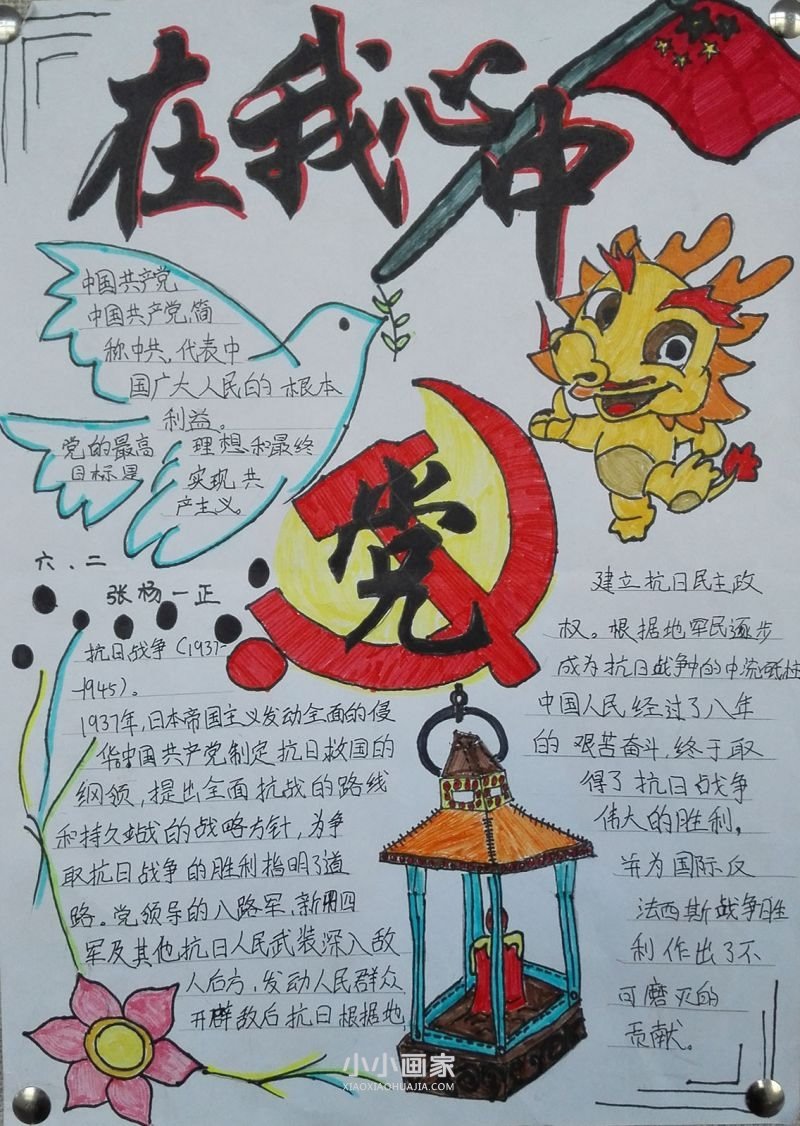 在我心中
党
中国共产党
中国共产党,简
称中共,代表中
国广大人民的根本
利益。
党的最高理想和最终
目标是实现共
产主义。
六.二
张杨一正
抗日战争(1937-
-1945)。
1937年,日本帝国主义发动全面的侵
华中国共产党制定抗日救国的
纲领,提出全面抗战的路线
和持久战的战略方针,为争
取抗日战争的胜利指明了道
路。党领导的八路军,新四
军及其他抗日人民武装深入敌
人后方,发动人民群众
开辟敌后抗日根据地,
建立抗日民主政
权。根据地军民逐步
成为抗日战争中的中流砥柱
中国人民经过了八年
的艰苦奋斗,终于取
得了抗日战争
伟大的胜利,
并为国际反
法西斯战争胜
利作出了不
可磨灭的
贡献。
小小画家
XIAOXIAOHUAJIA.COM